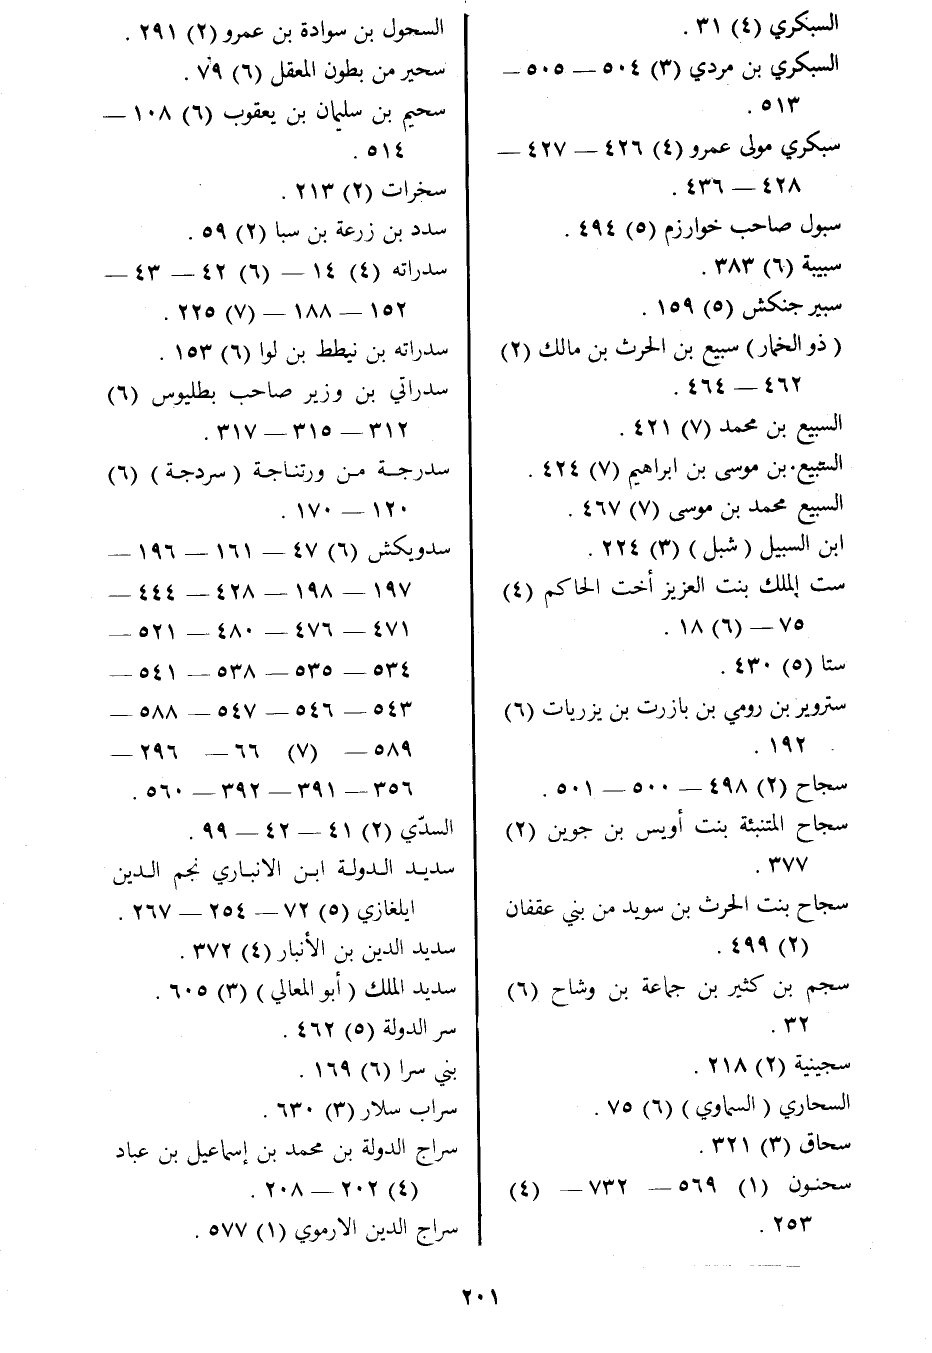 السبكري (٤) ٣١ .
السبكري بن مردي (٣) ٥٠٤ — ٥٠٥ —
٥١٣ .
سبكري مولى عمرو (٤) ٤٢٦ — ٤٢٧ —
٤٢٨ — ٤٣٦ .
سبول صاحب خوارزم (٥) ٤٩٤ .
سبيبة (٦) ٣٨٣ .
سبير جنكش (٥) ١٥٩ .
( ذو الخمار ) سبيع بن الحرث بن مالك (٢)
٤٦٢ — ٤٦٤ .
السبيع بن محمد (٧) ٤٢١ .
السبيع بن موسى بن ابراهيم (٧) ٤٢٤ .
السبيع محمد بن موسى (٧) ٤٦٧ .
ابن السبيل ( شبل ) (٣) ٢٢٤ .
ست الملك بنت العزيز أخت الحاكم (٤)
٧٥ — (٦) ١٨ .
ستا (٥) ٤٣٠ .
ستروير بن رومي بن بازرت بن يزريات (٦)
١٩٢ .
سجاح (٢) ٤٩٨ — ٥٠٠ — ٥٠١ .
سجاح المتنبئة بنت أويس بن جوين (٢)
٣٧٧ .
سجاح بنت الحرث بن سويد من بني عقفان
(٢) ٤٩٩ .
سجم بن كثير بن جماعة بن وشاح (٦)
٣٢ .
سجينية (٢) ٢١٨ .
السحاري ( السماوي ) (٦) ٧٥ .
سحاق (٣) ٣٢١ .
سحنون (١) ٥٦٩ — ٧٣٢ — (٤)
٢٥٣ .
السحول بن سوادة بن عمرو (٢) ٢٩١ .
سحير من بطون المعقل (٦) ٧٩ .
سحيم بن سليمان بن يعقوب (٦) ١٠٨ —
٥١٤ .
سخرات (٢) ٢١٣ .
سدد بن زرعة بن سبا (٢) ٥٩ .
سدراته (٤) ١٤ — (٦) ٤٢ — ٤٣ —
١٥٢ — ١٨٨ — (٧) ٢٢٥ .
سدراته بن نيطط بن لوا (٦) ١٥٣ .
سدراتي بن وزير صاحب بطليوس (٦)
٣١٢ — ٣١٥ — ٣١٧ .
سدرجة من ورتناجة ( سردجة ) (٦)
١٢٠ — ١٧٠ .
سدويكش (٦) ٤٧ — ١٦١ — ١٩٦ —
١٩٧ — ١٩٨ — ٤٢٨ — ٤٤٤ —
٤٧١ — ٤٧٦ — ٤٨٠ — ٥٢١ —
٥٣٤ — ٥٣٥ — ٥٣٨ — ٥٤١ —
٥٤٣ — ٥٤٦ — ٥٤٧ — ٥٨٨ —
٥٨٩ — (٧) ٦٦ — ٢٩٦ —
٣٥٦ — ٣٩١ — ٣٩٢ — ٥٦٠ .
السدّي (٢) ٤١ — ٤٢ — ٩٩ .
سديد الدولة ابن الانباري نجم الدين
ايلغازي (٥) ٧٢ — ٢٥٤ — ٢٦٧ .
سديد الدين بن الأنبار (٤) ٣٧٢ .
سديد الملك ( أبو المعالي ) (٣) ٦٠٥ .
سر الدولة (٥) ٤٦٢ .
بني سرا (٦) ١٦٩ .
سراب سلار (٣) ٦٣٠ .
سراج الدولة بن محمد بن إسماعيل بن عباد
(٤) ٢٠٢ — ٢٠٨ .
سراج الدين الارموي (١) ٥٧٧ .
٢٠١